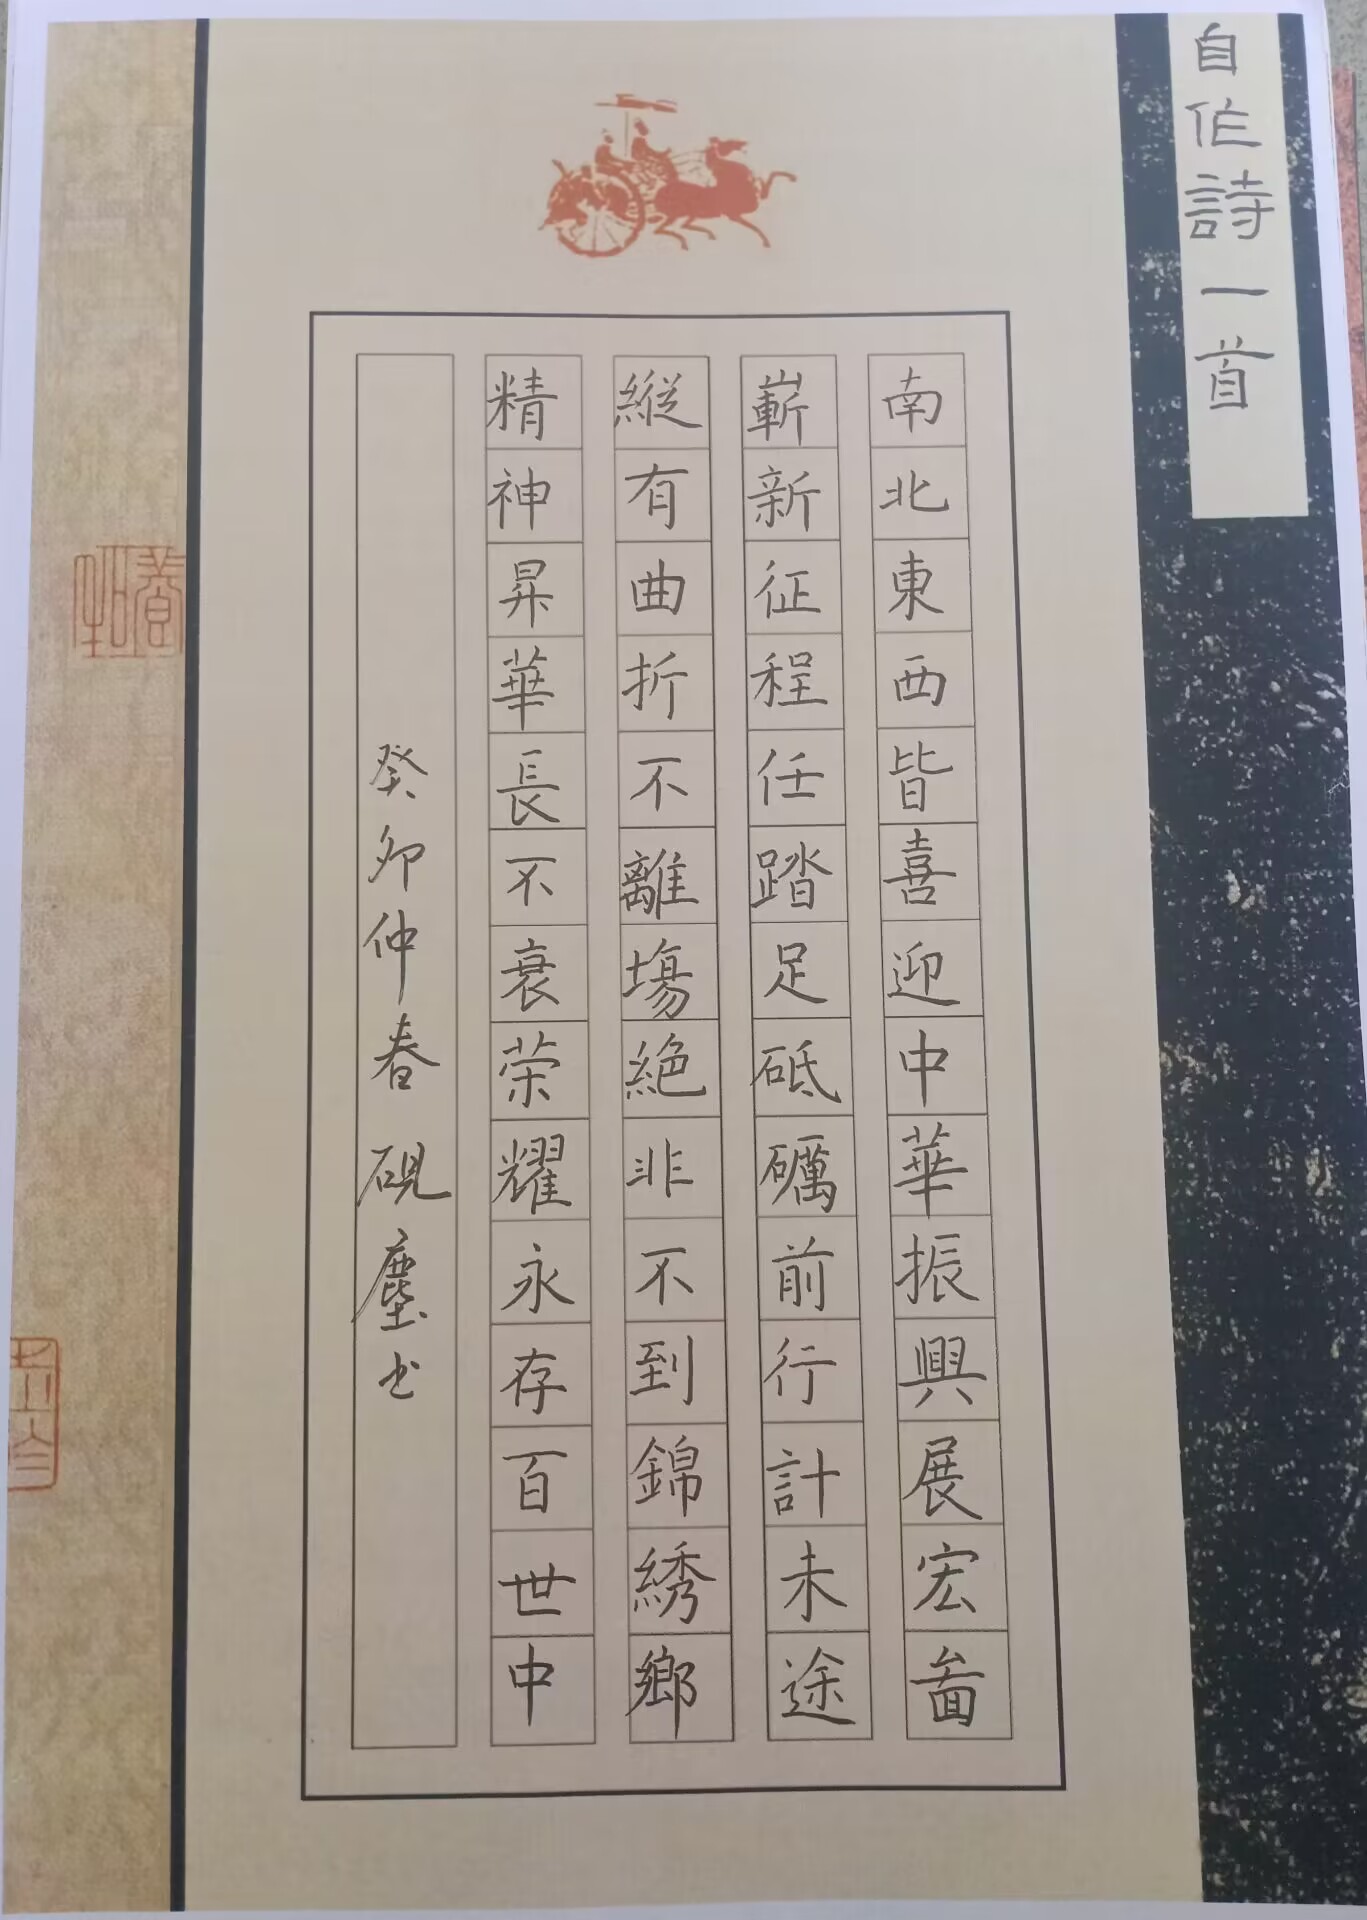 自作詩一首
南北東西皆喜迎中華振興展宏啚
嶄新征程任踏足砥礪前行計未途
縱有曲折不離場絕非不到錦綉鄉
精神昇華長不衰荣耀永存百世中
癸卯仲春 硯塵书